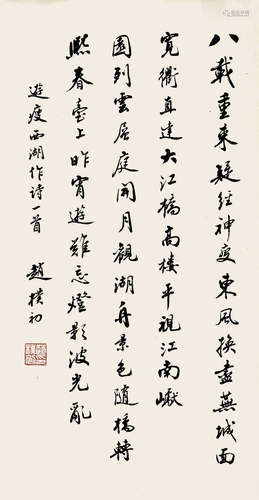 八載重來疑經神變東風換盡蕪城面
寬衢直達大江橋高樓平視江南巘
園列雲屏庭開月觀湖舟景色隨橋轉
熙春臺上昨宵遊難忘燈影波光亂
遊瘦西湖作詩一首
趙樸初